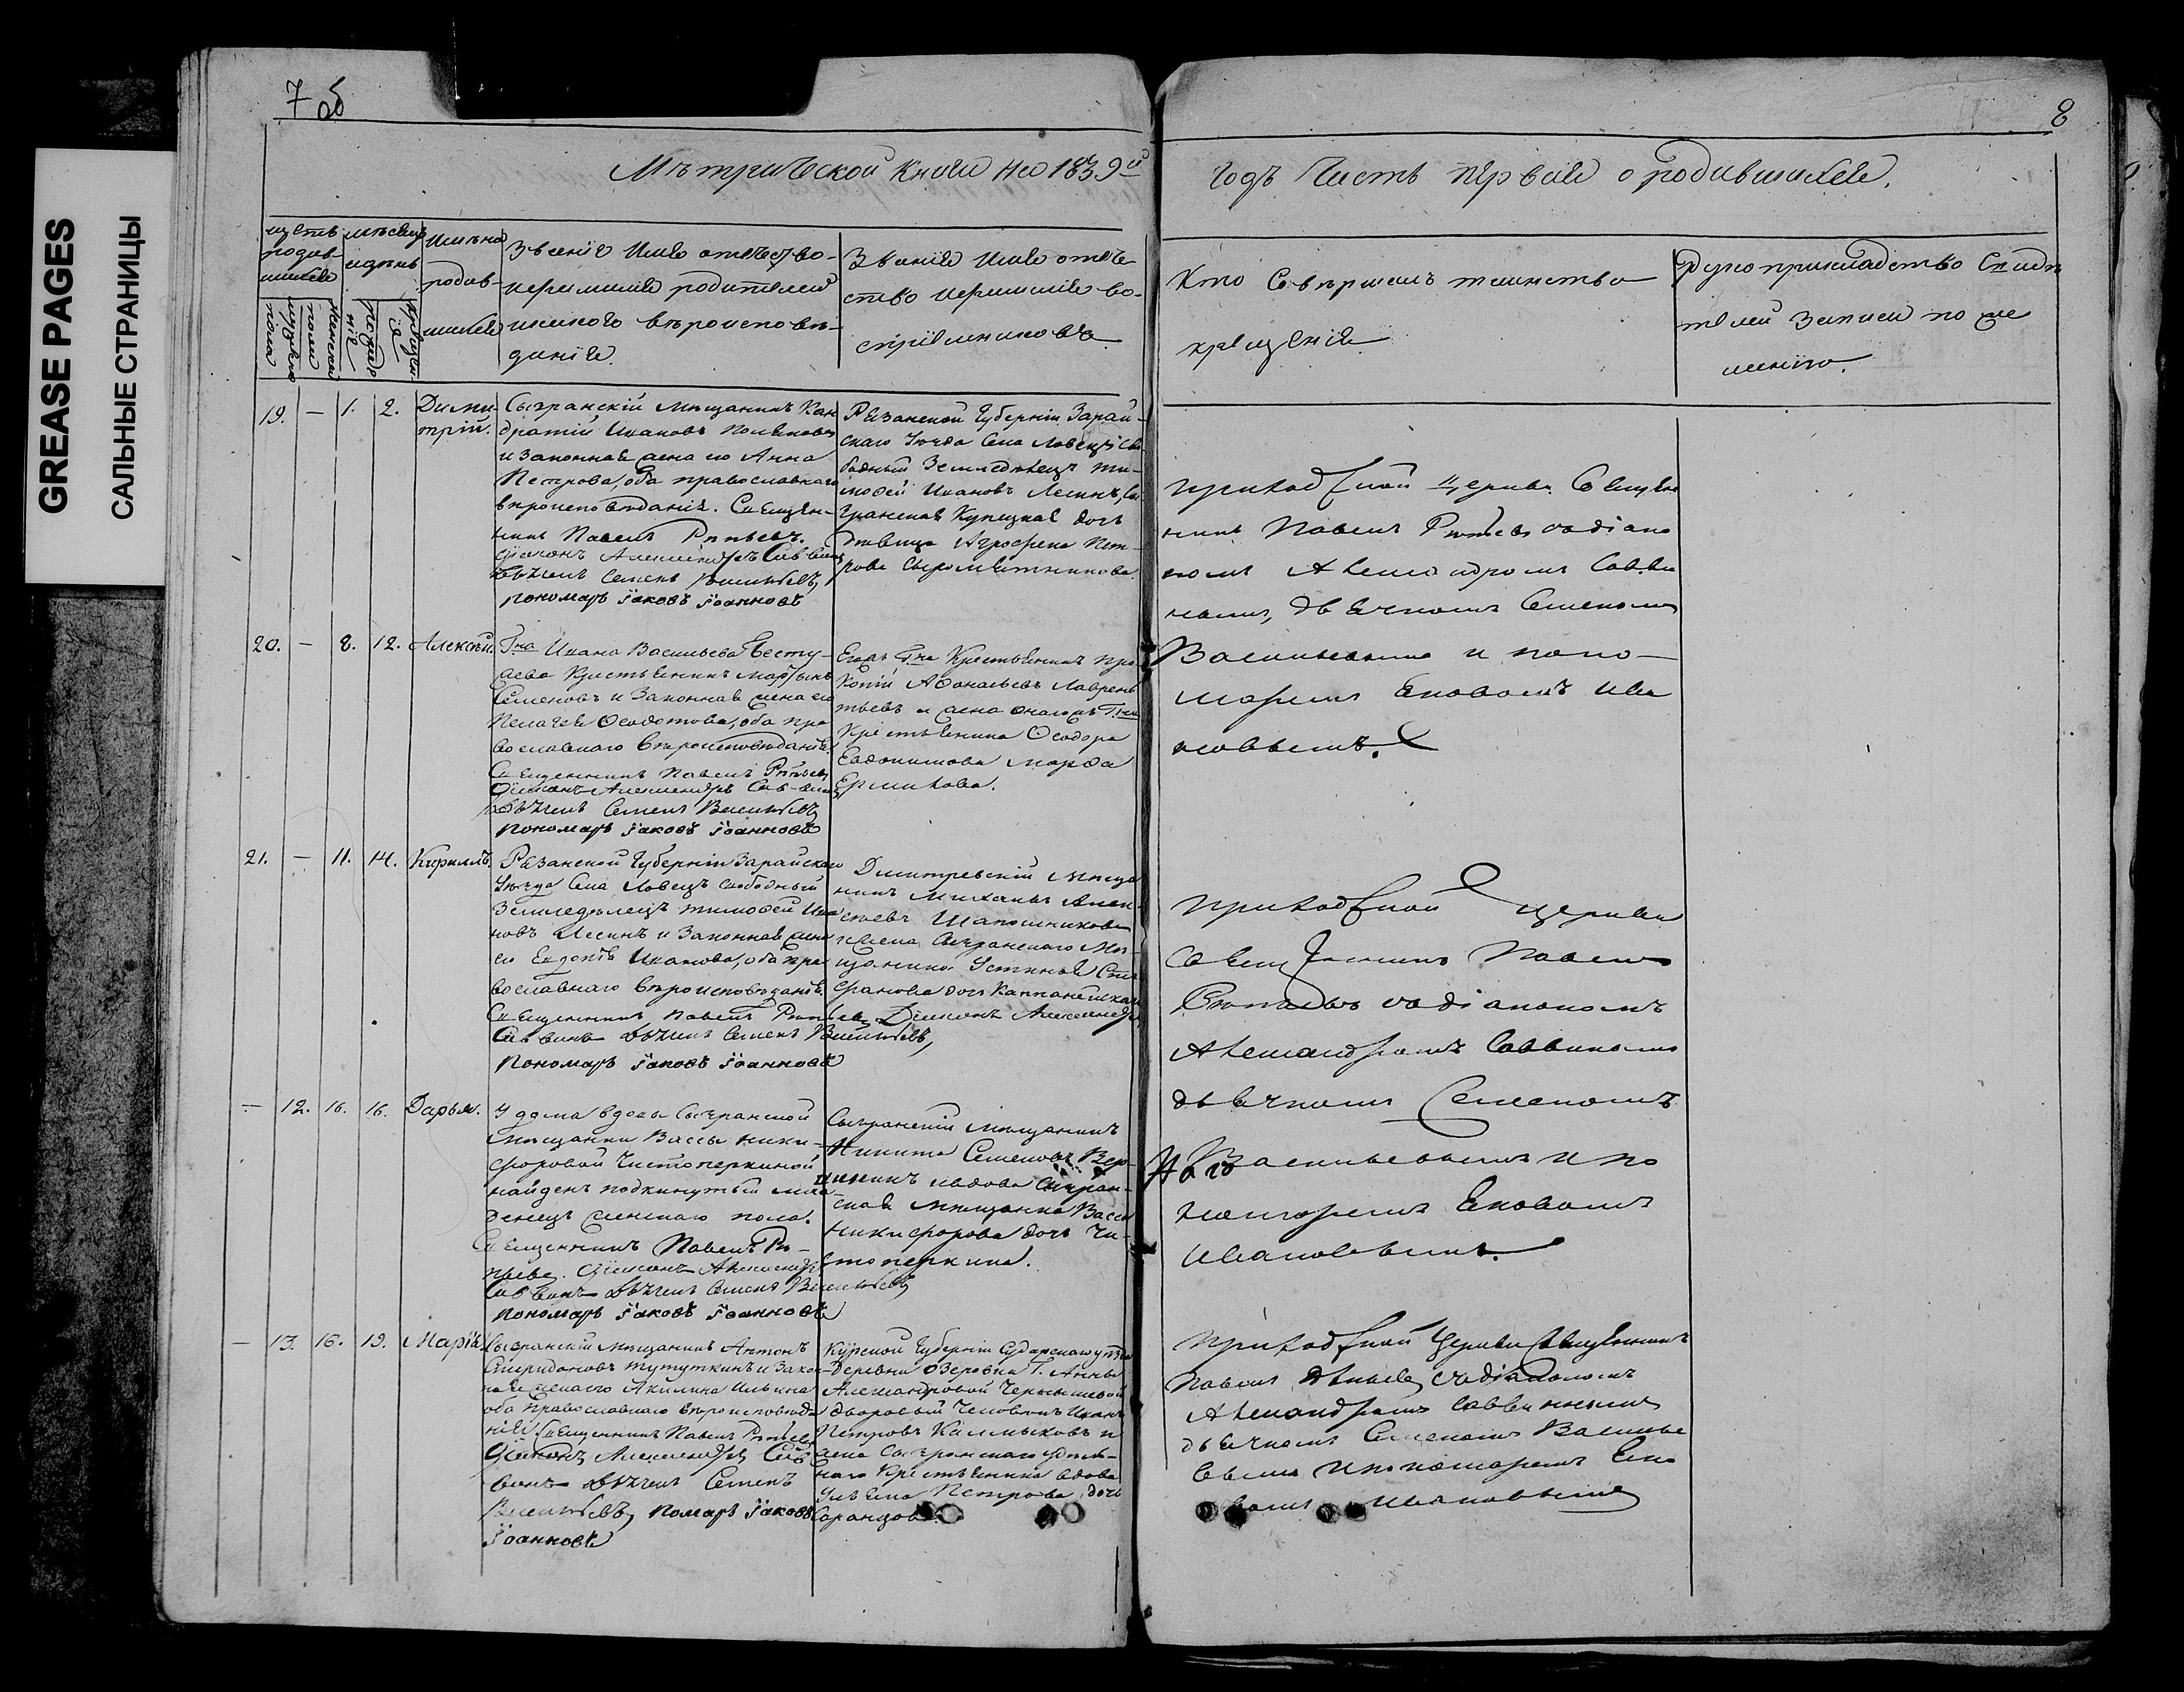 GREASE PAGES
САЛЬНЫЕ СТРАНИЦЫ
7 об
8
Метрической книги на 1839й
годъ Часть первая о родившихся.
Имена
родив-
шихся
Званіе Имя отчество
и фамилія родителей
и какого вѣроисповѣ-
данія.
Званіе Имя отче-
ство и фамилія во-
спріемниковъ
Кто Совершалъ таинство
крещенія
Рукоприкладство Свидѣ
телей записи по же
ланію.
19. — 1. 2. Дими-
трій.
Сызранскій мѣщанинъ Кон
дратій Ивановъ Поляковъ
и Законная жена его Анна
Петрова, оба православнаго
вѣроисповѣданія. Священ-
никъ Павелъ
Діаконъ Александръ Саввинъ
Семенъ Васильевъ
пономарь Іаковъ Іоанновъ
Рязанской Губерніи Зарай-
скаго Уѣзда Села Ловецъ Сво-
бодный Земледѣлецъ Ти-
мофей Ивановъ Лесинъ, Сы
зранская Купецкая дочь
дѣвица Агрофена Пет-
рова Сыромятникова.
приходской церкви Священ
никъ Павелъ со діако
номъ Александромъ Савви
нымъ, дьячкомъ Семеномъ
Васильевымъ и поно-
маремъ Яковомъ Ива
новымъ.
20. — 8. 12. Алексѣй.
Г.на Ивана Васильева Бесту-
жева Крестьянинъ Мартынъ
Семеновъ и Законная жена его
Пелагея Федотова, оба пра
вославнаго вѣроисповѣданія.
Священникъ Павелъ
Діаконъ Александръ Саввинъ
Семенъ Васильевъ
пономарь Іаковъ Іоанновъ
Егожъ Г.на Крестьянинъ Про
копій Афонасьевъ Лаврень
тьевъ и жена онагожъ Г.на
Крестьянина Федора
Евдокимова Марфа
Ермилова.
21. — 11. 14. Кириллъ.
Рязанской Губерніи Зарайскаго
Уѣзда Села Ловецъ свободный
Земледѣлецъ Тимофей Ива
новъ Лесинъ и Законная жена
его Евдокія Иванова, оба пра
вославнаго вѣроисповѣданія.
Священникъ Павелъ Діаконъ Александръ
Саввинъ Семенъ Васильевъ,
пономарь Іаковъ Іоанновъ
Димитревскій Мѣща
нинъ Михаилъ Алек-
сѣевъ Шапошниковъ
и жена Сызранскаго Мѣ-
щанина Устинья Сте
фанова дочь
приходской церкви
Священникъ Павелъ
со діакономъ
Александромъ Саввинымъ
дьячкомъ Семеномъ
Васильевымъ и по
номаремъ Яковомъ
Ивановымъ.
— 12. 16. 16. Дарья.
У дома вдовы Сызранской
мѣщанки Вассы Ники-
форовой Чистоперкиной
найденъ подкинутый мла
денецъ женскаго пола.
Священникъ Павелъ
Діаконъ Александръ
Саввинъ Семенъ Васильевъ
пономарь Іаковъ Іоанновъ
Сызранскій мѣщанинъ
Никита Семеновъ
и вдова Сызран-
ская мѣщанка Васса
Никифорова дочь Чи-
стоперкина.
— 13. 16. 19. Марія.
Сызранскій мѣщанинъ Антонъ
Спиридоновъ Тутуткинъ и Закон
ная жена его Акилина Ильина
оба Православнаго вѣроисповѣда
нія Священникъ Павелъ
Діаконъ Александръ Сав
винъ Семенъ
Васильевъ, помарь Іаковъ
Іоанновъ
Курской Губерніи уѣзда
Деревни Озеровки Г. Анны
Александровой Чернышевой
дворовый Человѣкъ Иванъ
Петровъ Калмыковъ и
жена Сызранскаго удѣль-
наго Крестьянина вдова
Ульяна Петрова дочь
приходской Церкви Священникъ
Павелъ со діакономъ
Александромъ Саввинымъ
дьячкомъ Семеномъ Василье
вымъ и пономаремъ Яко
вомъ Ивановымъ